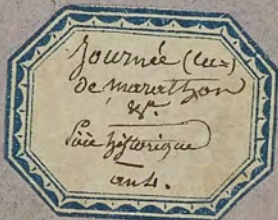 Journée (La=)
de marathon
&ª.
Pièce historique
an 4.